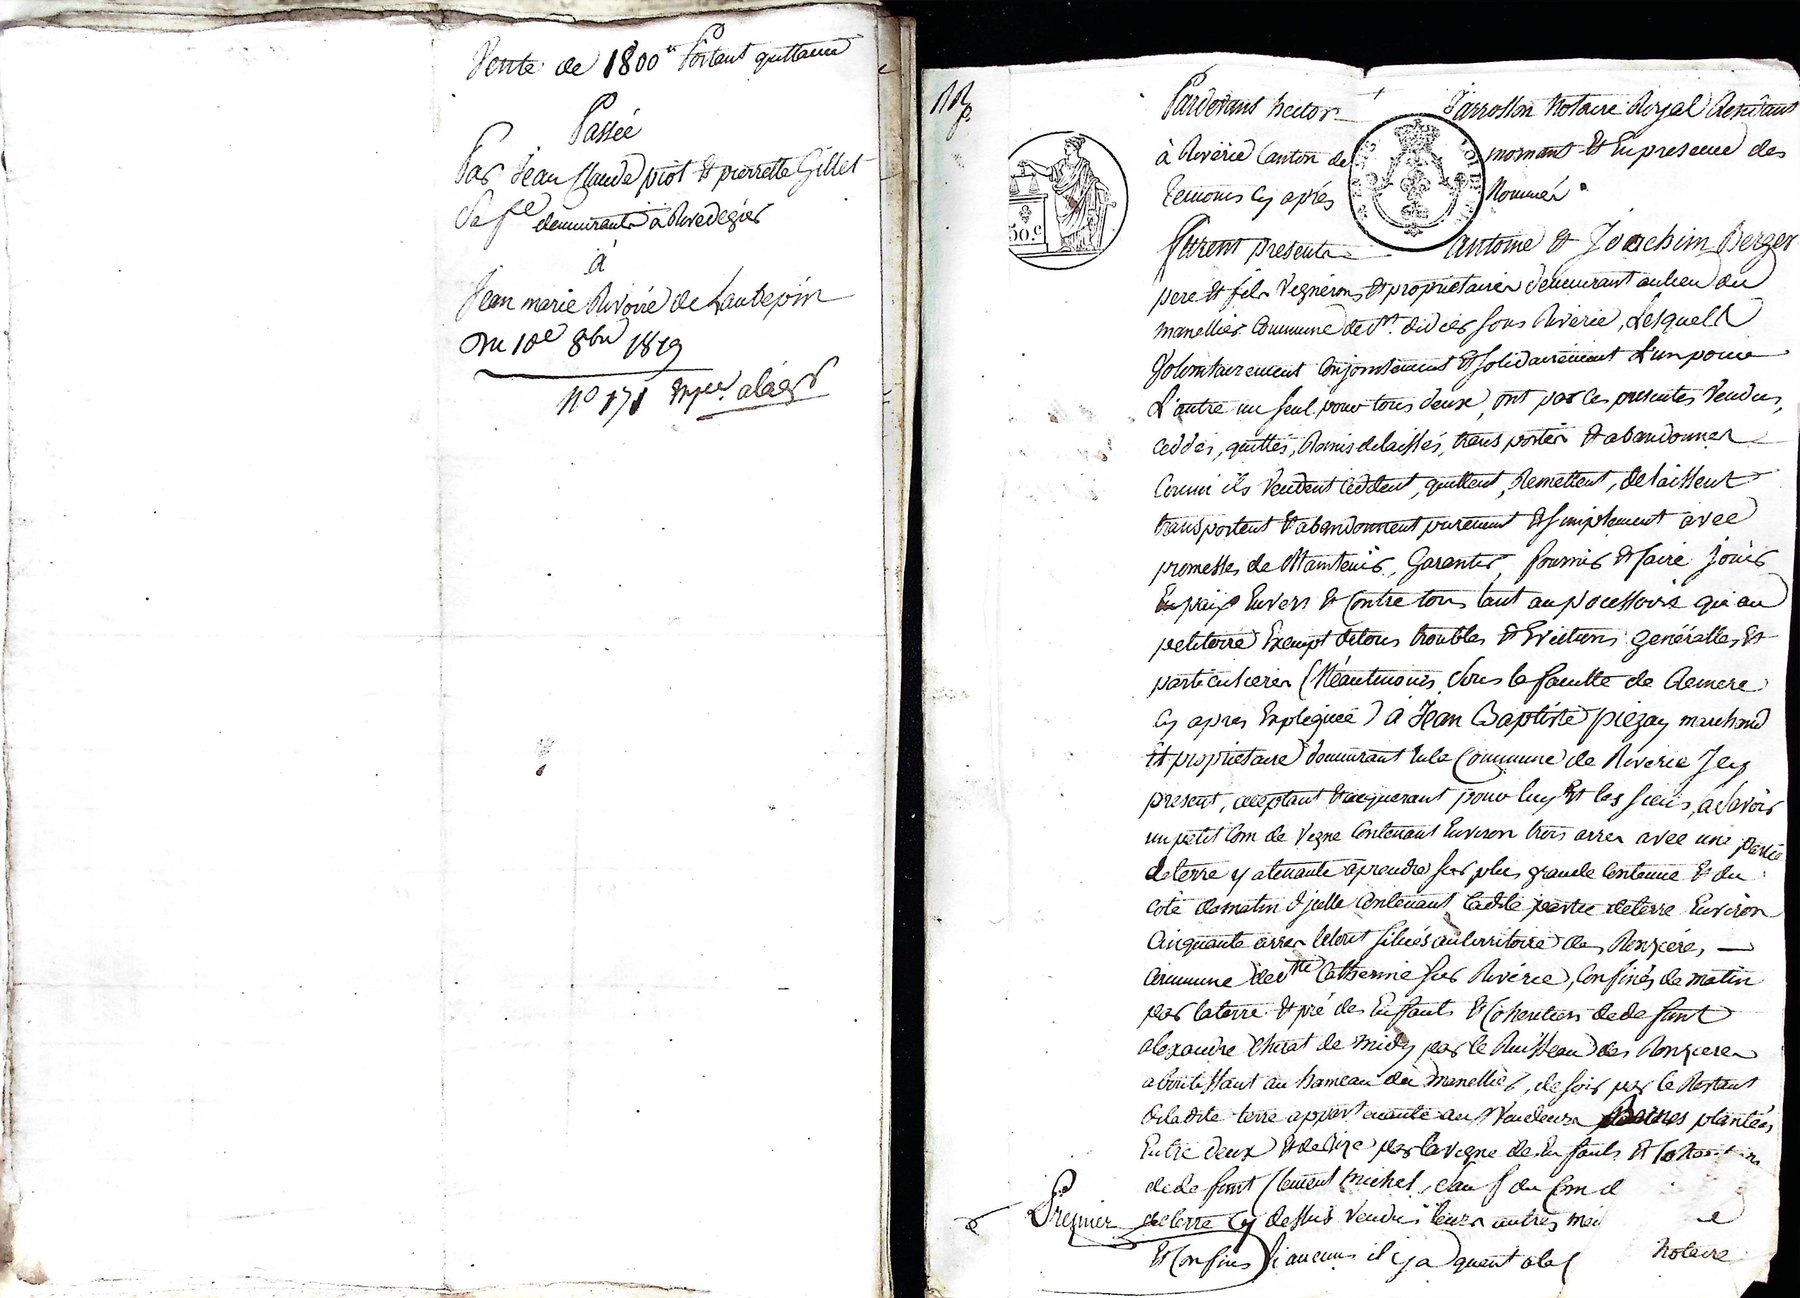 Vente de 1800 tt Portant quittance
Passée
Par Jean Claude piot et pierrette Gillet
Sa fe demeurants a Rivedegier
à
Jean marie Rivoire de Laubepin
Du 10e 8bre 1819
N° 171
Pardevant hector Jarrosson Notaire Royal Residant
à Riverie Canton de mornant et En presence des
temoins cy après Nommés
furent presents antoine et Joachim Berger
pere et fils vignerons et proprietaires demeurant au lieu du
manellier Commune de St. didier sous Riverie, Lesquels
Volontairement Conjointement et solidairement L'un pour
L'autre un seul pour tous deux, ont par ces presentes Vendus,
ceddés, quittés, Remis delaissés, transportés et abandonnés
Comme ils Vendent ceddent, quittent, Remettent, delaissent
transportent et abandonnent purement et simplement avec
promesses de Maintenir, Garantir, fournir et faire jouir
En paix Envers et Contre tous tant au pocessoire qu'au
petitoire Exempt de tous troubles et Evictions generalles et
particulieres (Néantmoins sous la faculté de Remere
cy apres Expliquée) a Jean Baptiste piegay marchand
Et proprietaire demeurant En la Commune de Riverie Icy
present, acceptant et acquerant pour luy et les siens, a Savoir
un petit Com de Vigne Contenant Environ trois arres avec une partie
de terre y atenante a prendre sur plus grande Contenue et du
coté de matin d'jcelle Contenant ladite partie de terre Environ
Cinquante arres le tout situés au territoire des Ronzieres, —
Commune de Ste Catherine sur Riverie, Confinés de matin
par la terre et pré des Enfants et Coheritiers de defunt
alexandre Chirat de midy par le Ruisseau des Ronzieres
aboutissant au hameau du manellier, de soir par le Restant
de la dite terre appartenante aux Vendeurs Bornes plantées
Entre deux et de bize par la vigne des Enfants et Coheritiers
de defunt Clement Michel, sauf du Com d
Premier de terre cy dessus Vendus leurs autres mei
Et Confins si aucuns il y a quant a les notaire